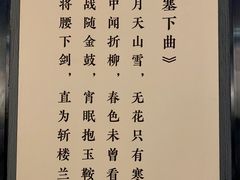 塞下曲》
月天山雪，无花只有寒
中闻折柳，春色未曾看
战随金鼓，宵眠抱玉鞍
将腰下剑，直为斩楼兰